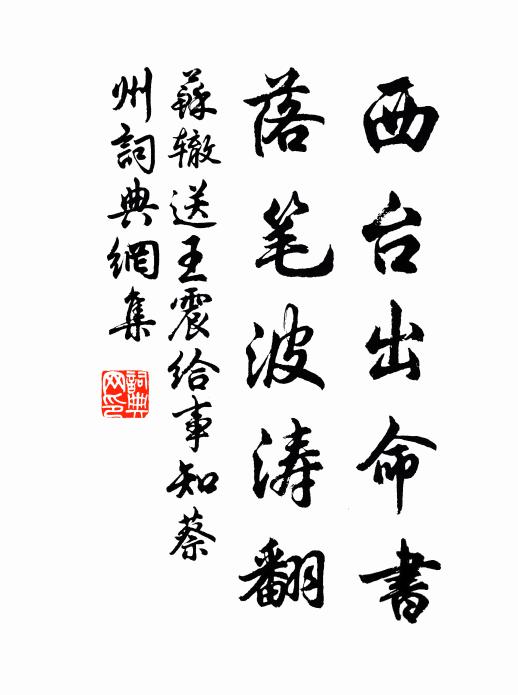 西台出命書
落笔波涛翻
蘇辙送王震给事知蔡
州詞典網集
詞典
网印